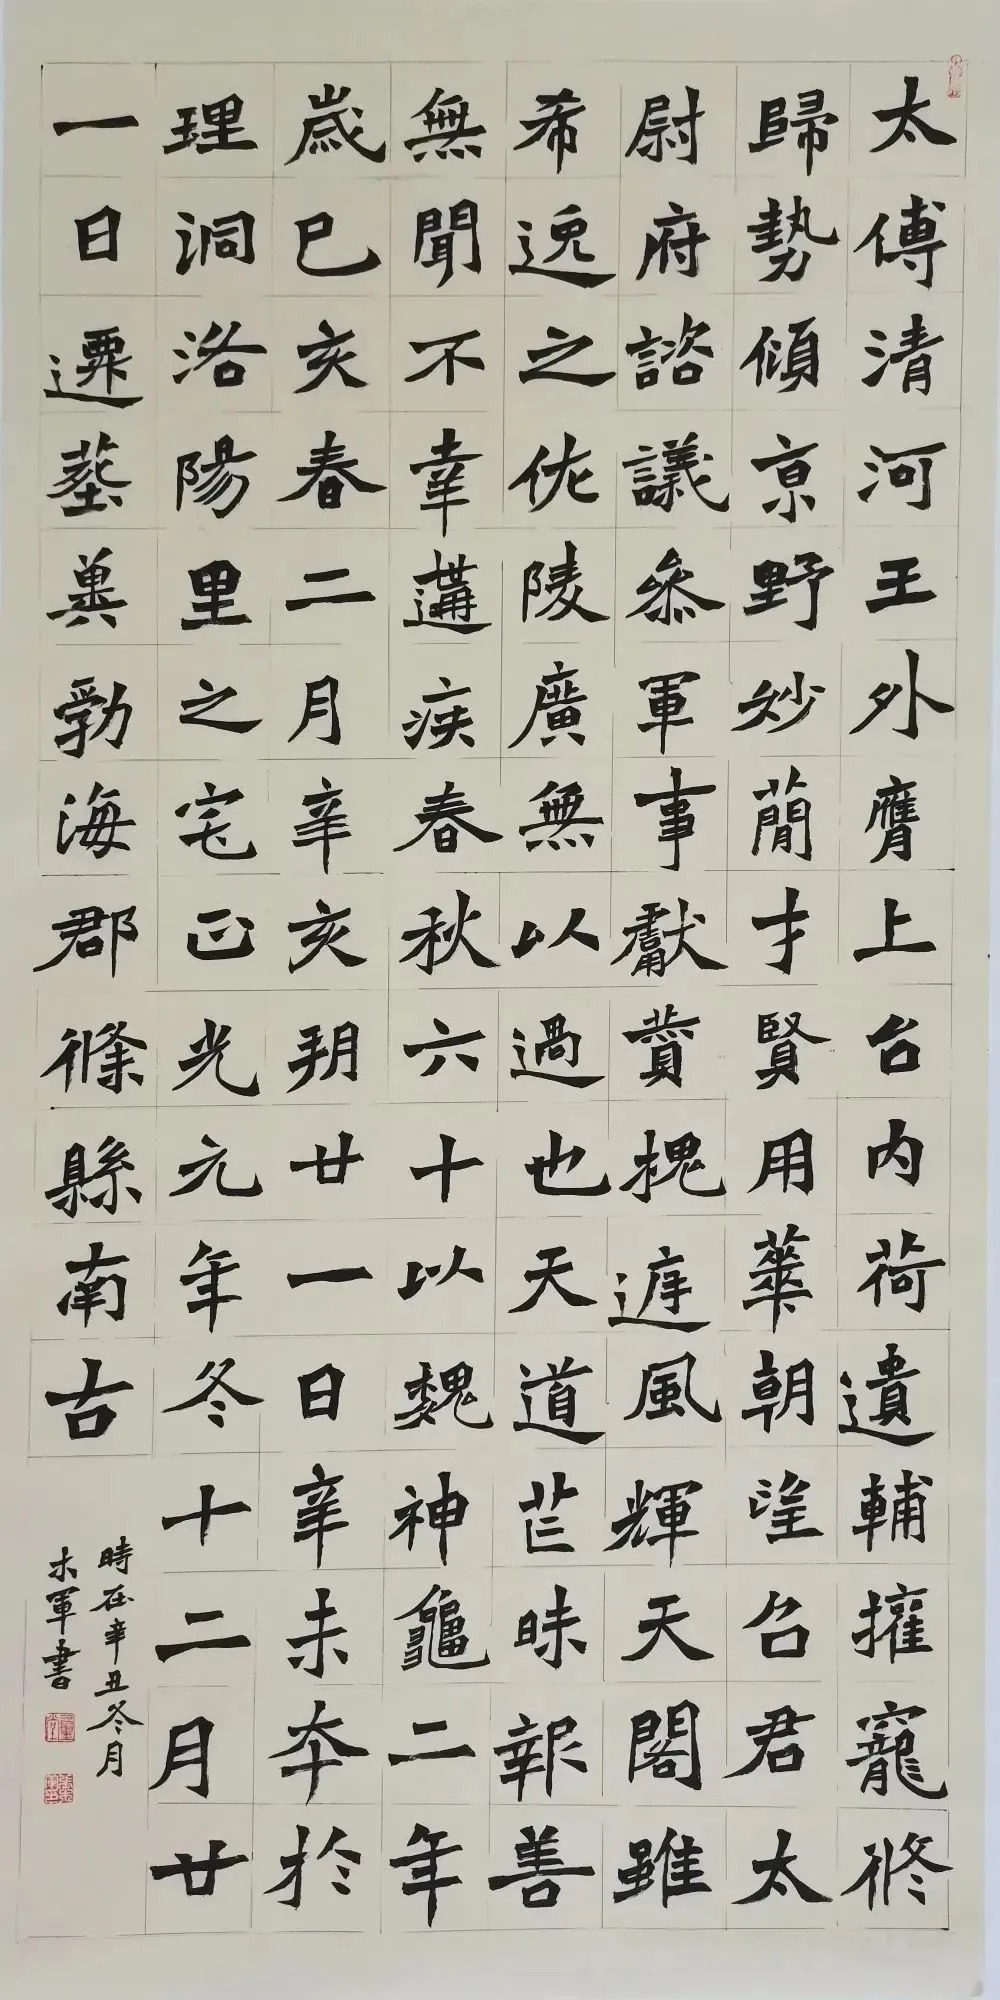 太傅清河王外膺上台内荷遺輔擁寵脩
歸勢傾京野妙蕳才賢用華朝望召君太
尉府諮議叅軍事獻賛槐遅風輝天閣雖
希逸之佐陵廣無以過也天道茫昧報善
無聞不幸遘疾春秋六十以魏神龜二年
歲己亥春二月辛亥朔廿一日辛未卒於
理洞洛陽里之宅正光元年冬十二月廿
一日遷塟冀勃海郡脩縣南古
時在辛丑冬月
木軍書